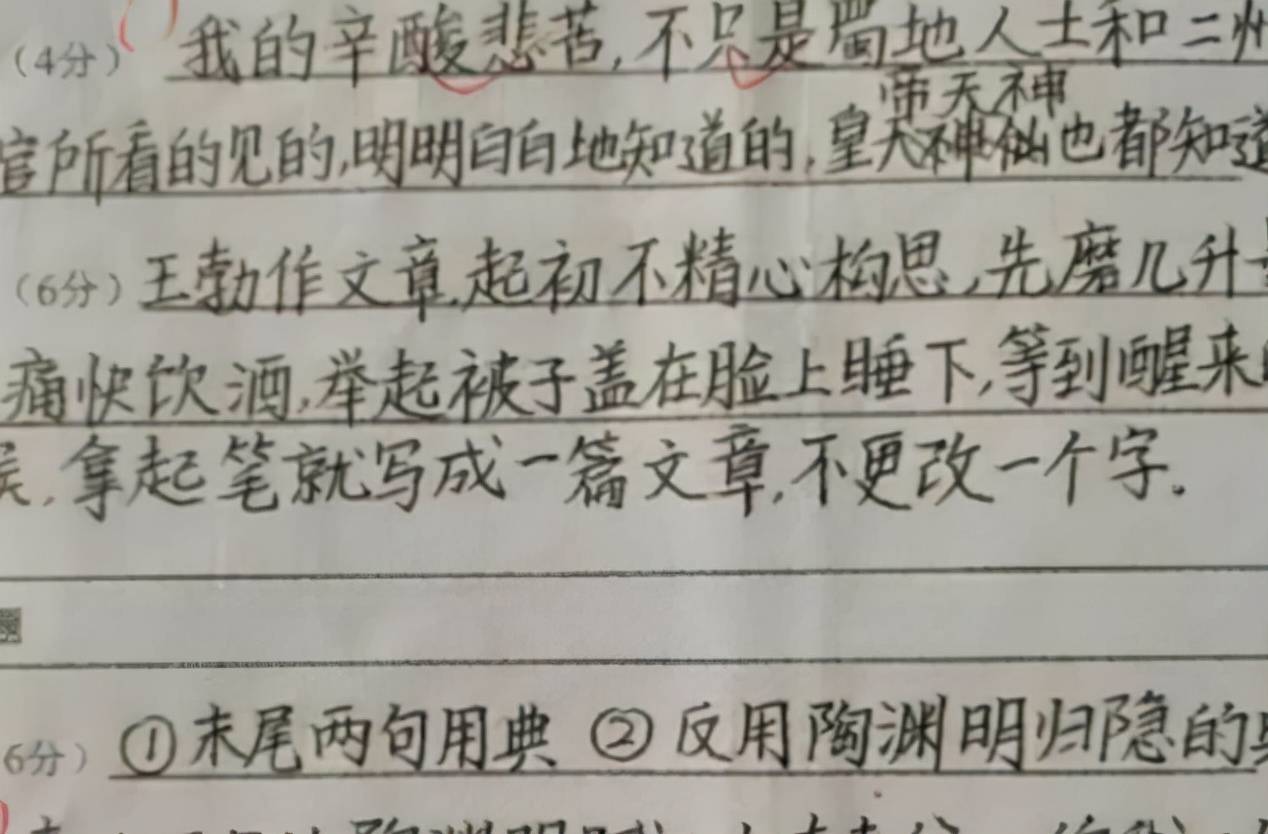 （4分） 我的辛酸悲苦，不只是蜀地人士和二州
帝天神
官所看的见的，明明白白地知道的，皇天神仙也都知道
（6分）王勃作文章，起初不精心构思，先磨几升
痛快饮酒，举起被子盖在脸上睡下，等到醒来
，拿起笔就写成一篇文章，不更改一个字。
6分） ①末尾两句用典 ②反用陶渊明归隐的